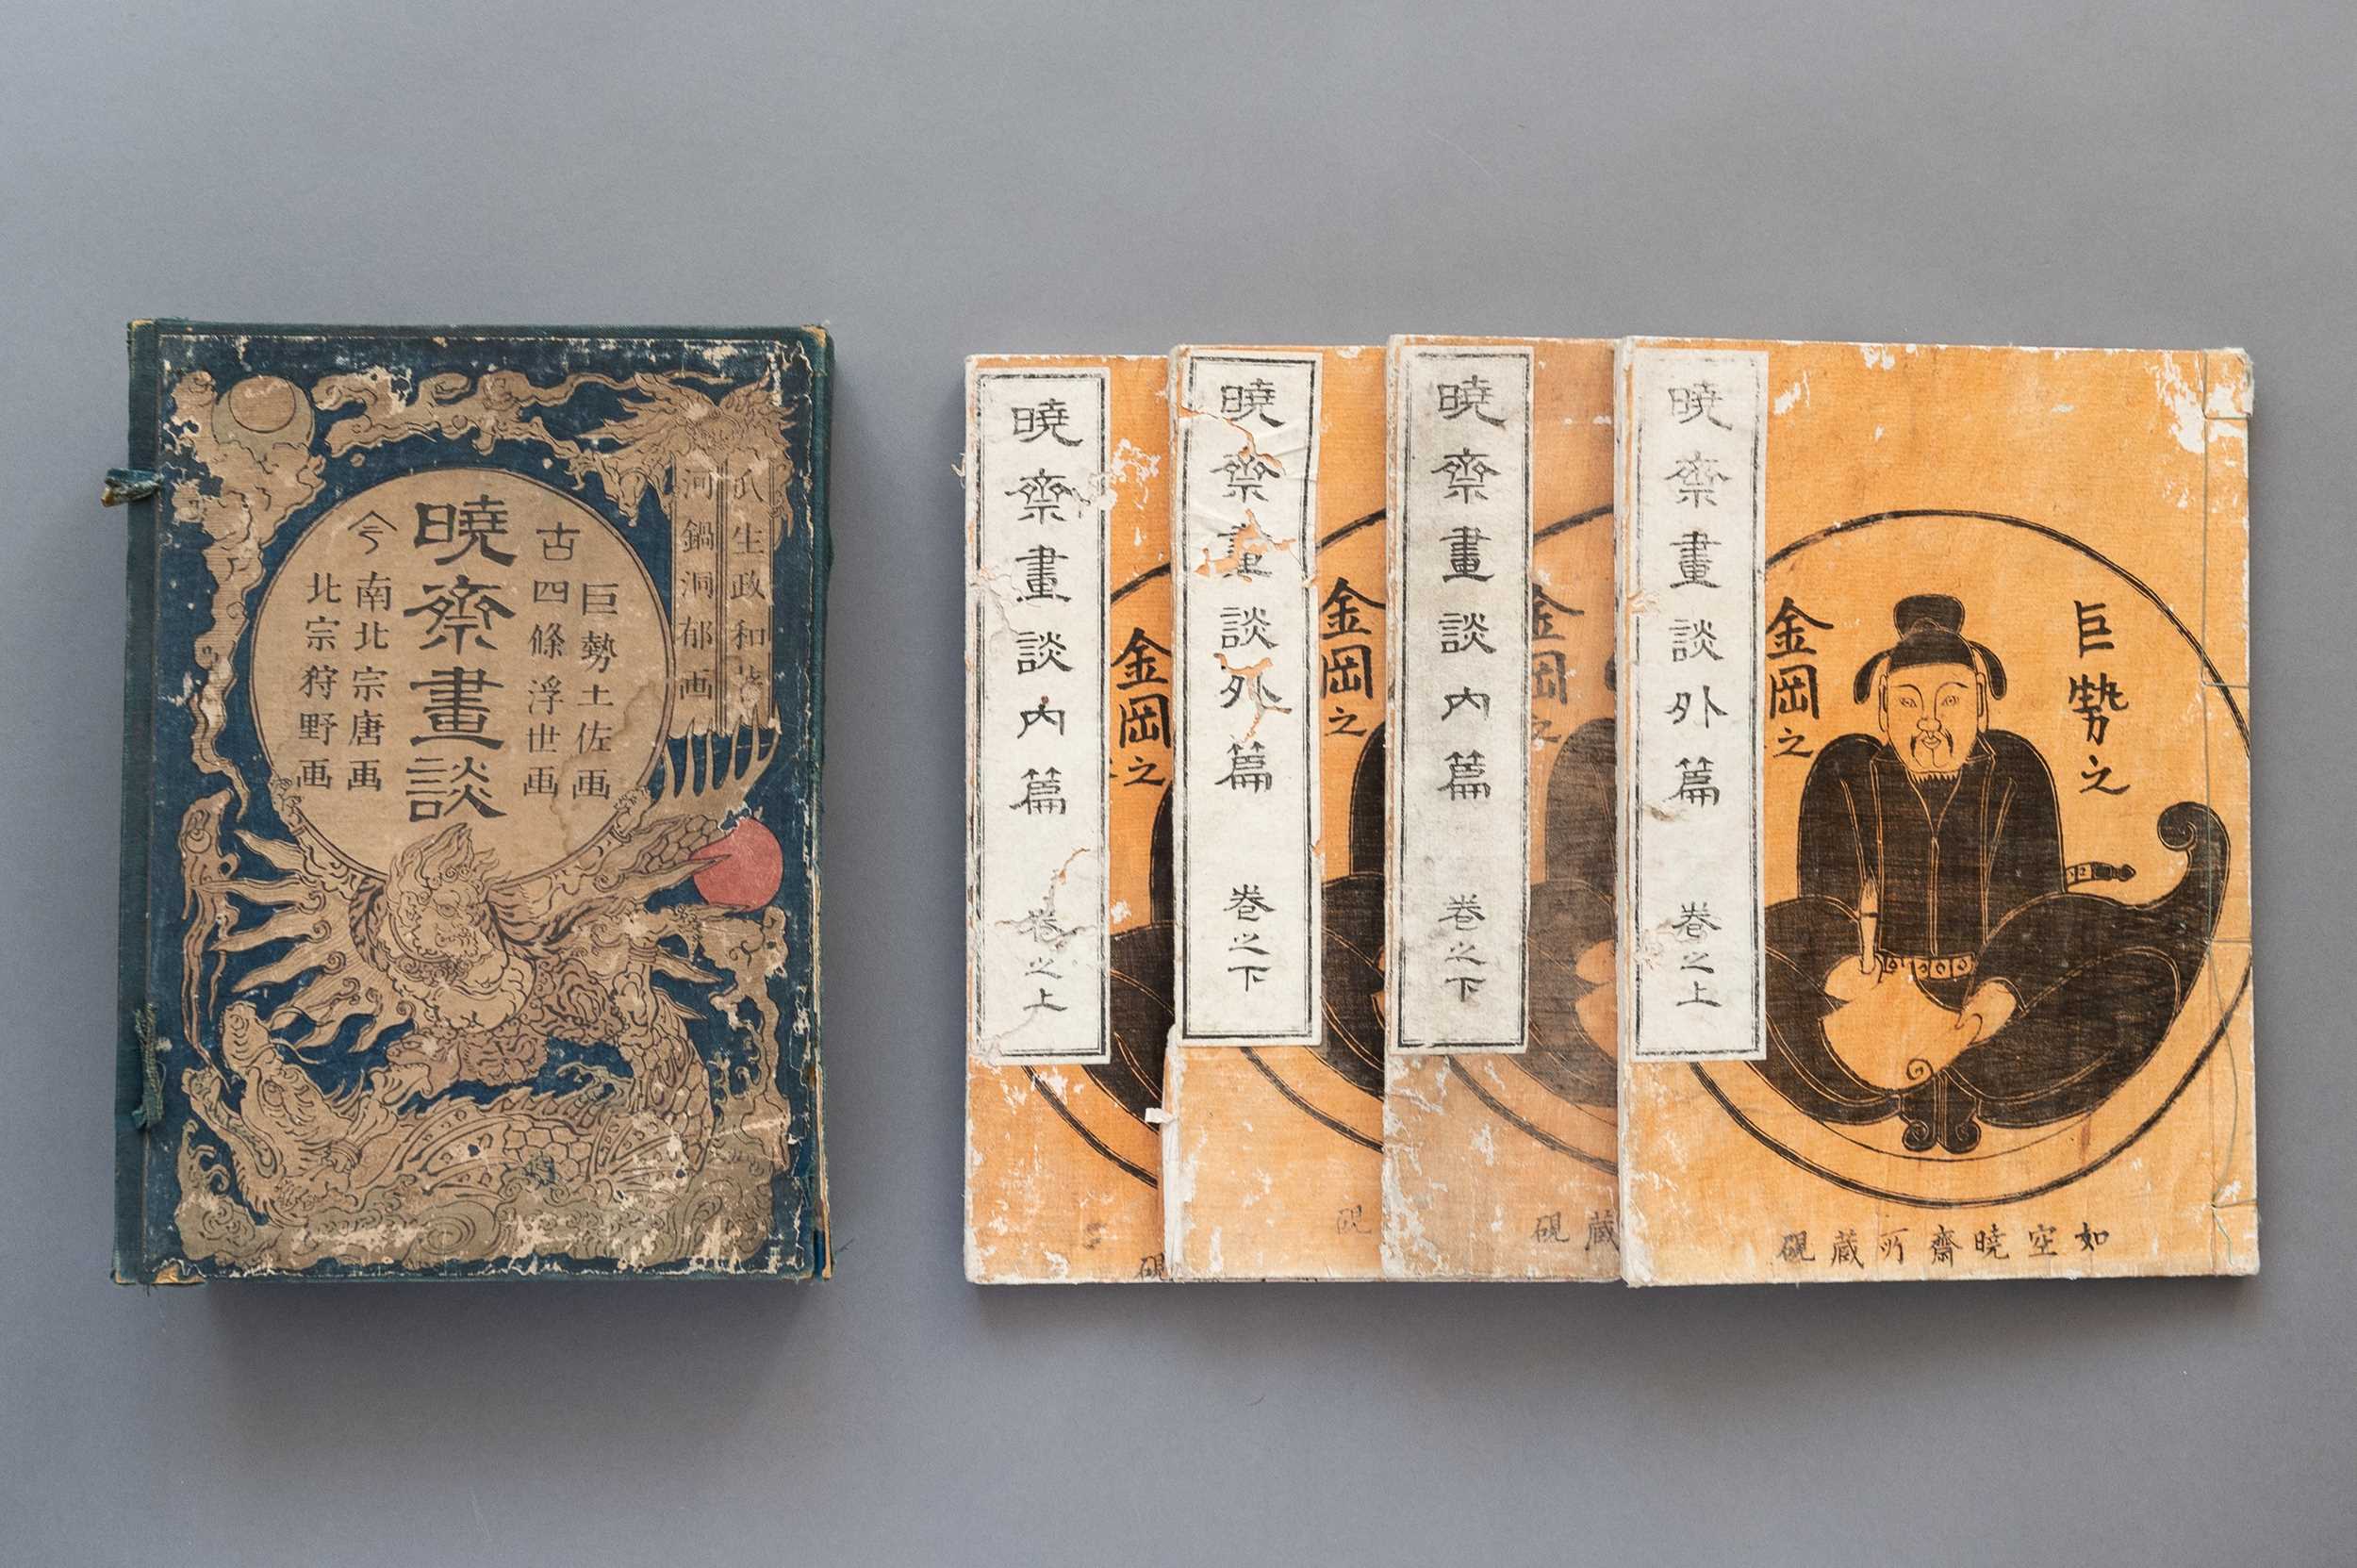 瓜生政和著
河鍋洞郁画
古
巨勢土佐画
四條浮世画
暁斎畫談
今
南北宗唐画
北宗狩野画
暁斎畫談内篇 巻之上
金岡之
硯
暁斎畫談外篇 巻之下
金岡之
硯
暁斎畫談内篇 巻之下
金岡之
蔵硯
暁斎畫談外篇 巻之上
巨勢之
金岡之
如空暁齋所蔵硯